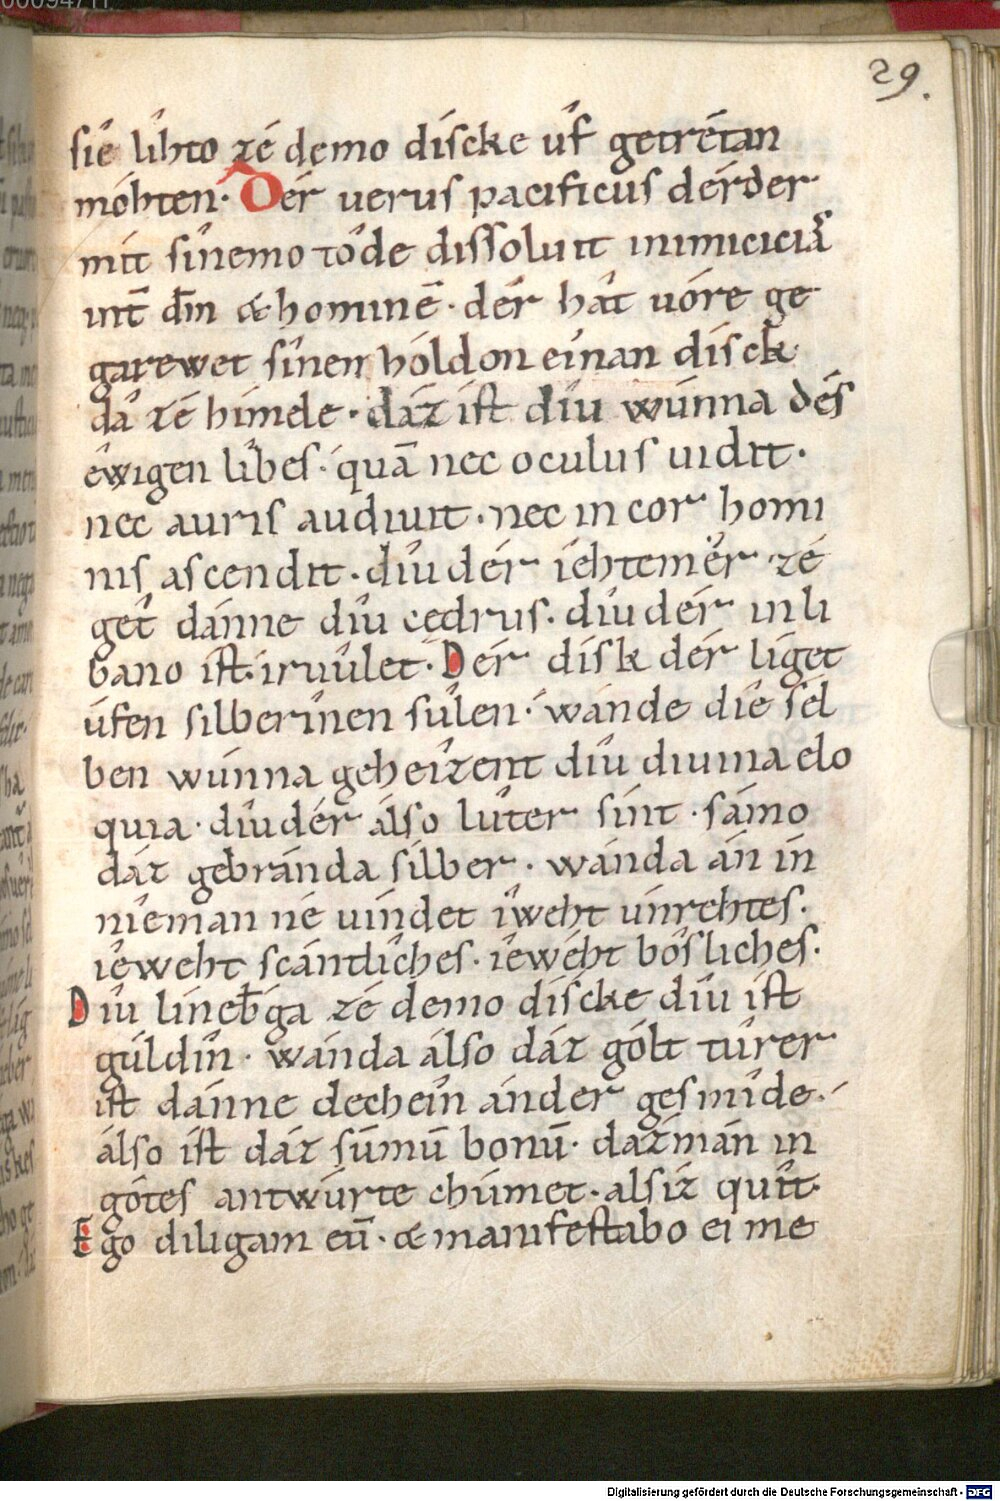 29.
síe líhto zé demo díscke ûf getrétan
móhten. Dér uerus pacificus dérder
mít sînemo tôde dissoluit inimiciciā
int̄ dm̄ & hominē. dér hát uóre ge
garewet sînen hóldon eínan disck
dâ zé hímele. dáz ist díu wúnna dés
êwigen lîbes. quā nec oculus uidit.
nec auris audiuit. nec in cor homi
nis ascendit. díu dér iehtemêr zé
gêt dánne díu cedrus. díu dér in li
bano ist. irvûlet. Dér dísk dér líget
ûfen silberînen sûlen. wánde díe sél
ben wúnna geheízent díu diuina elo
quia. díu dér álso lûter sínt. sámo
dáz gebránda silber. wánda án ín
níeman né uíndet îweht únrehtes.
îeweht scántlîches. îewéht bôsliches.
Díu lineb̄ga zé demo díscke díu ist
gúldîn. wánda álso dáz gólt tûrer
ist dánne decheín ánder gesmîde.
álso íst dáz súmū bonū. dáz mán in
gótes antwúrte chúmet. alsíz quît.
Ego diligam eū. & manifestabo ei me
Digitalisierung gefördert durch die Deutsche Forschungsgemeinschaft - DFG